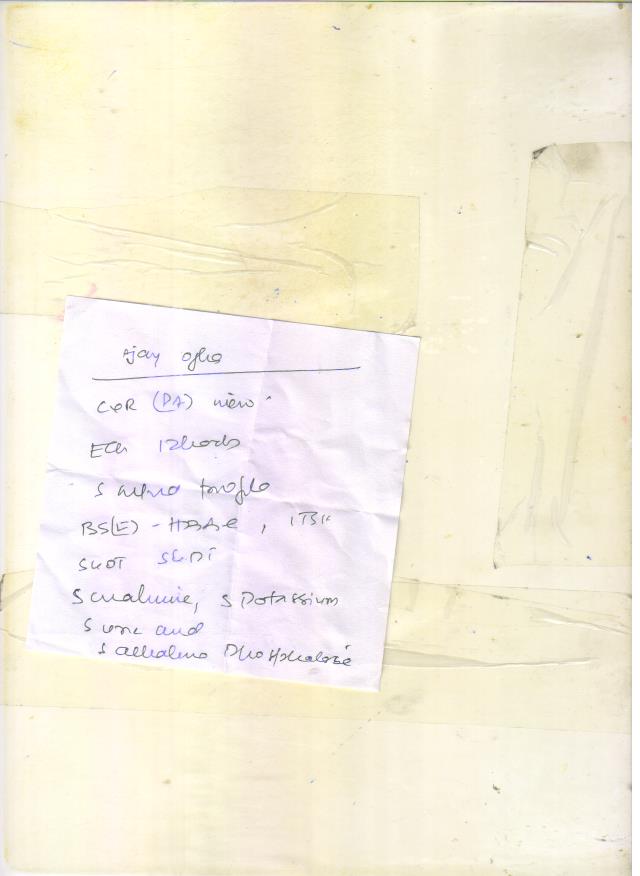 Ajay Ojha
CXR (PA) view
ECG 12 leads
S lipid profile
BS(F) - HbA1c,
SGOT SGPT
S creatinine, S Potassium
S uric acid
S alkaline Phosphatase